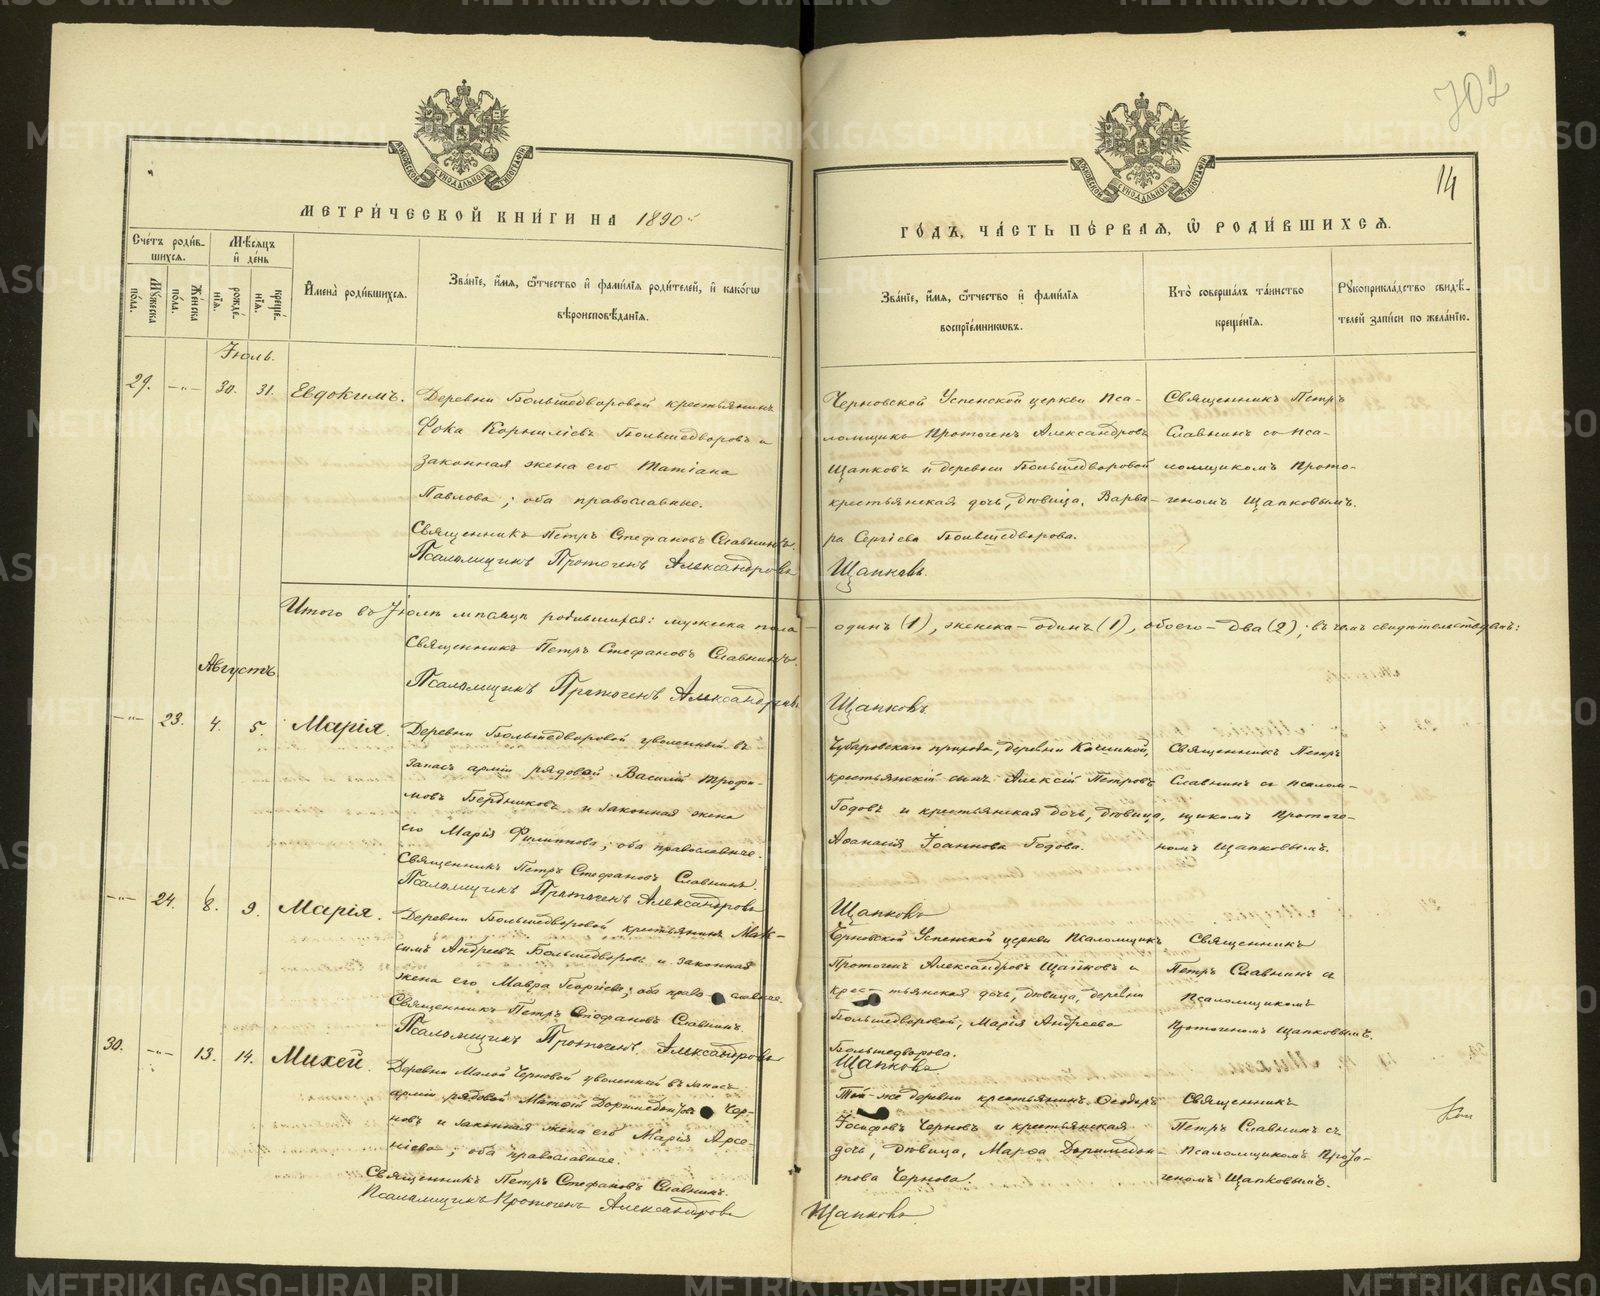 702
14
МЕТРИ́ЧЕСКОЙ КНИ́ГИ НА 1890й
ГО́ДЪ, ЧА́СТЬ ПЕ́РВАЯ, Ѿ РОДИ́ВШИХСЯ.
Сче́тъ роди́вшихся.
Мꙋжеска по́ла.
Же́нска по́ла.
Мѣ́сяцъ и҆ де́нь
рожде́нїѧ.
креще́нїѧ.
И҆мена̀ роди́вшихсѧ.
Зва́нїе, и҆́мѧ, ѻ҆́тчество и҆ фами́лїѧ роди́телей, и҆ како́гѡ
вѣроисповѣ́данїѧ.
Зва́нїе, и҆́мѧ, ѻ҆́тчество и҆ фами́лїѧ
воспрїе́мникѡвъ.
Кто̀ соверша́лъ та́инство
креще́нїѧ.
Рꙋкоприкла́дство свидѣ́-
телей за́писи по жела́нїю.
Іюль.
29. -"- 30. 31. Евдокимъ.
Деревни Большедворовой крестьянинъ
Фока Корниліевъ Большедворовъ и
законная жена его Татіана
Павлова; оба православные.
Священникъ Петръ Стефановъ Славнинъ.
Псаломщикъ Протогенъ Александровъ
Черновской Успенской церкви Пса-
ломщикъ Протогенъ Александровъ
Щапковъ и деревни Большедворовой
крестьянская дочь, дѣвица, Варва-
ра Сергіева Большедворова.
Щапковъ.
Священникъ Петръ
Славнинъ со пса-
ломщикомъ Прото-
геномъ Щапковымъ.
Итого въ Іюлѣ мѣсяцѣ родившихся: мужеска пола – одинъ (1), женска – одинъ (1), обоего – два (2); въ чемъ свидѣтельствуемъ:
Священникъ Петръ Стефановъ Славнинъ.
Псаломщикъ Протогенъ Александровъ Щапковъ.
Августъ.
-"- 23. 4. 5. Марія.
Деревни Большедворовой уволенный въ
запасъ арміи рядовой Василій Трофи-
мовъ Бердниковъ и законная жена
его Марія Филиппова; оба православные.
Священникъ Петръ Стефановъ Славнинъ.
Псаломщикъ Протогенъ Александровъ
Чубаровскаго прихода, деревни Кочиной,
крестьянскій сынъ Алексій Петровъ
Годовъ и крестьянская дочь, дѣвица,
Аѳанасія Іоаннова Годова.
Щапковъ
Священникъ Петръ
Славнинъ съ псалом-
щикомъ Протоге-
номъ Щапковымъ.
-"- 24. 8. 9. Марія.
Деревни Большедворовой крестьянинъ Мак-
симъ Андреевъ Большедворовъ и законная
жена его Мавра Георгіева; оба православные.
Священникъ Петръ Стефановъ Славнинъ.
Псаломщикъ Протогенъ Александровъ
Черновской Успенской церкви Псаломщикъ
Протогенъ Александровъ Щапковъ и
крестьянская дочь, дѣвица, деревни
Большедворовой, Марія Андреева
Большедворова.
Щапковъ
Священникъ
Петръ Славнинъ съ
Псаломщикомъ
Протогеномъ Щапковымъ.
30. -"- 13. 14. Михей.
Деревни Малой Черновой уволенный въ запасъ
арміи рядовой Матѳій Доримедонтовъ Чер-
новъ и законная жена его Марія Арсе-
ніева; оба православные.
Священникъ Петръ Стефановъ Славнинъ.
Псаломщикъ Протогенъ Александровъ
Той-же деревни крестьянинъ Ѳеодоръ
Іосифовъ Черновъ и крестьянская
дочь, дѣвица, Марѳа Доримедон-
това Чернова.
Щапковъ.
Священникъ
Петръ Славнинъ съ
Псаломщикомъ Прото-
геномъ Щапковымъ.
METRIKI.GASO-URAL.RU